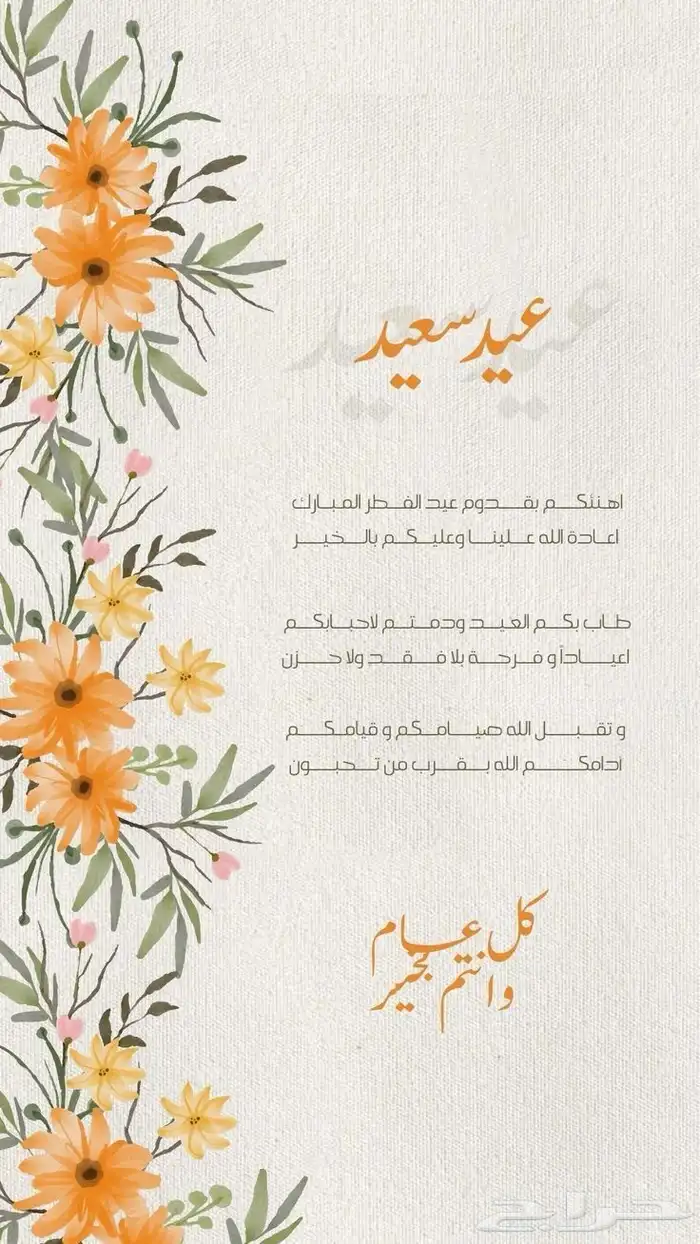 عيد سعيد
اهنئكم بقدوم عيد الفطر المبارك
اعادة الله علينا وعليكم بالخير
طاب بكم العيد ودمتم لاحبابكم
اعياداً و فرحة بلا فقد ولا حزن
و تقبل الله صيامكم و قيامكم
ادامكم الله بقرب من تحبون
كل عام
وانتم بخير
حراج